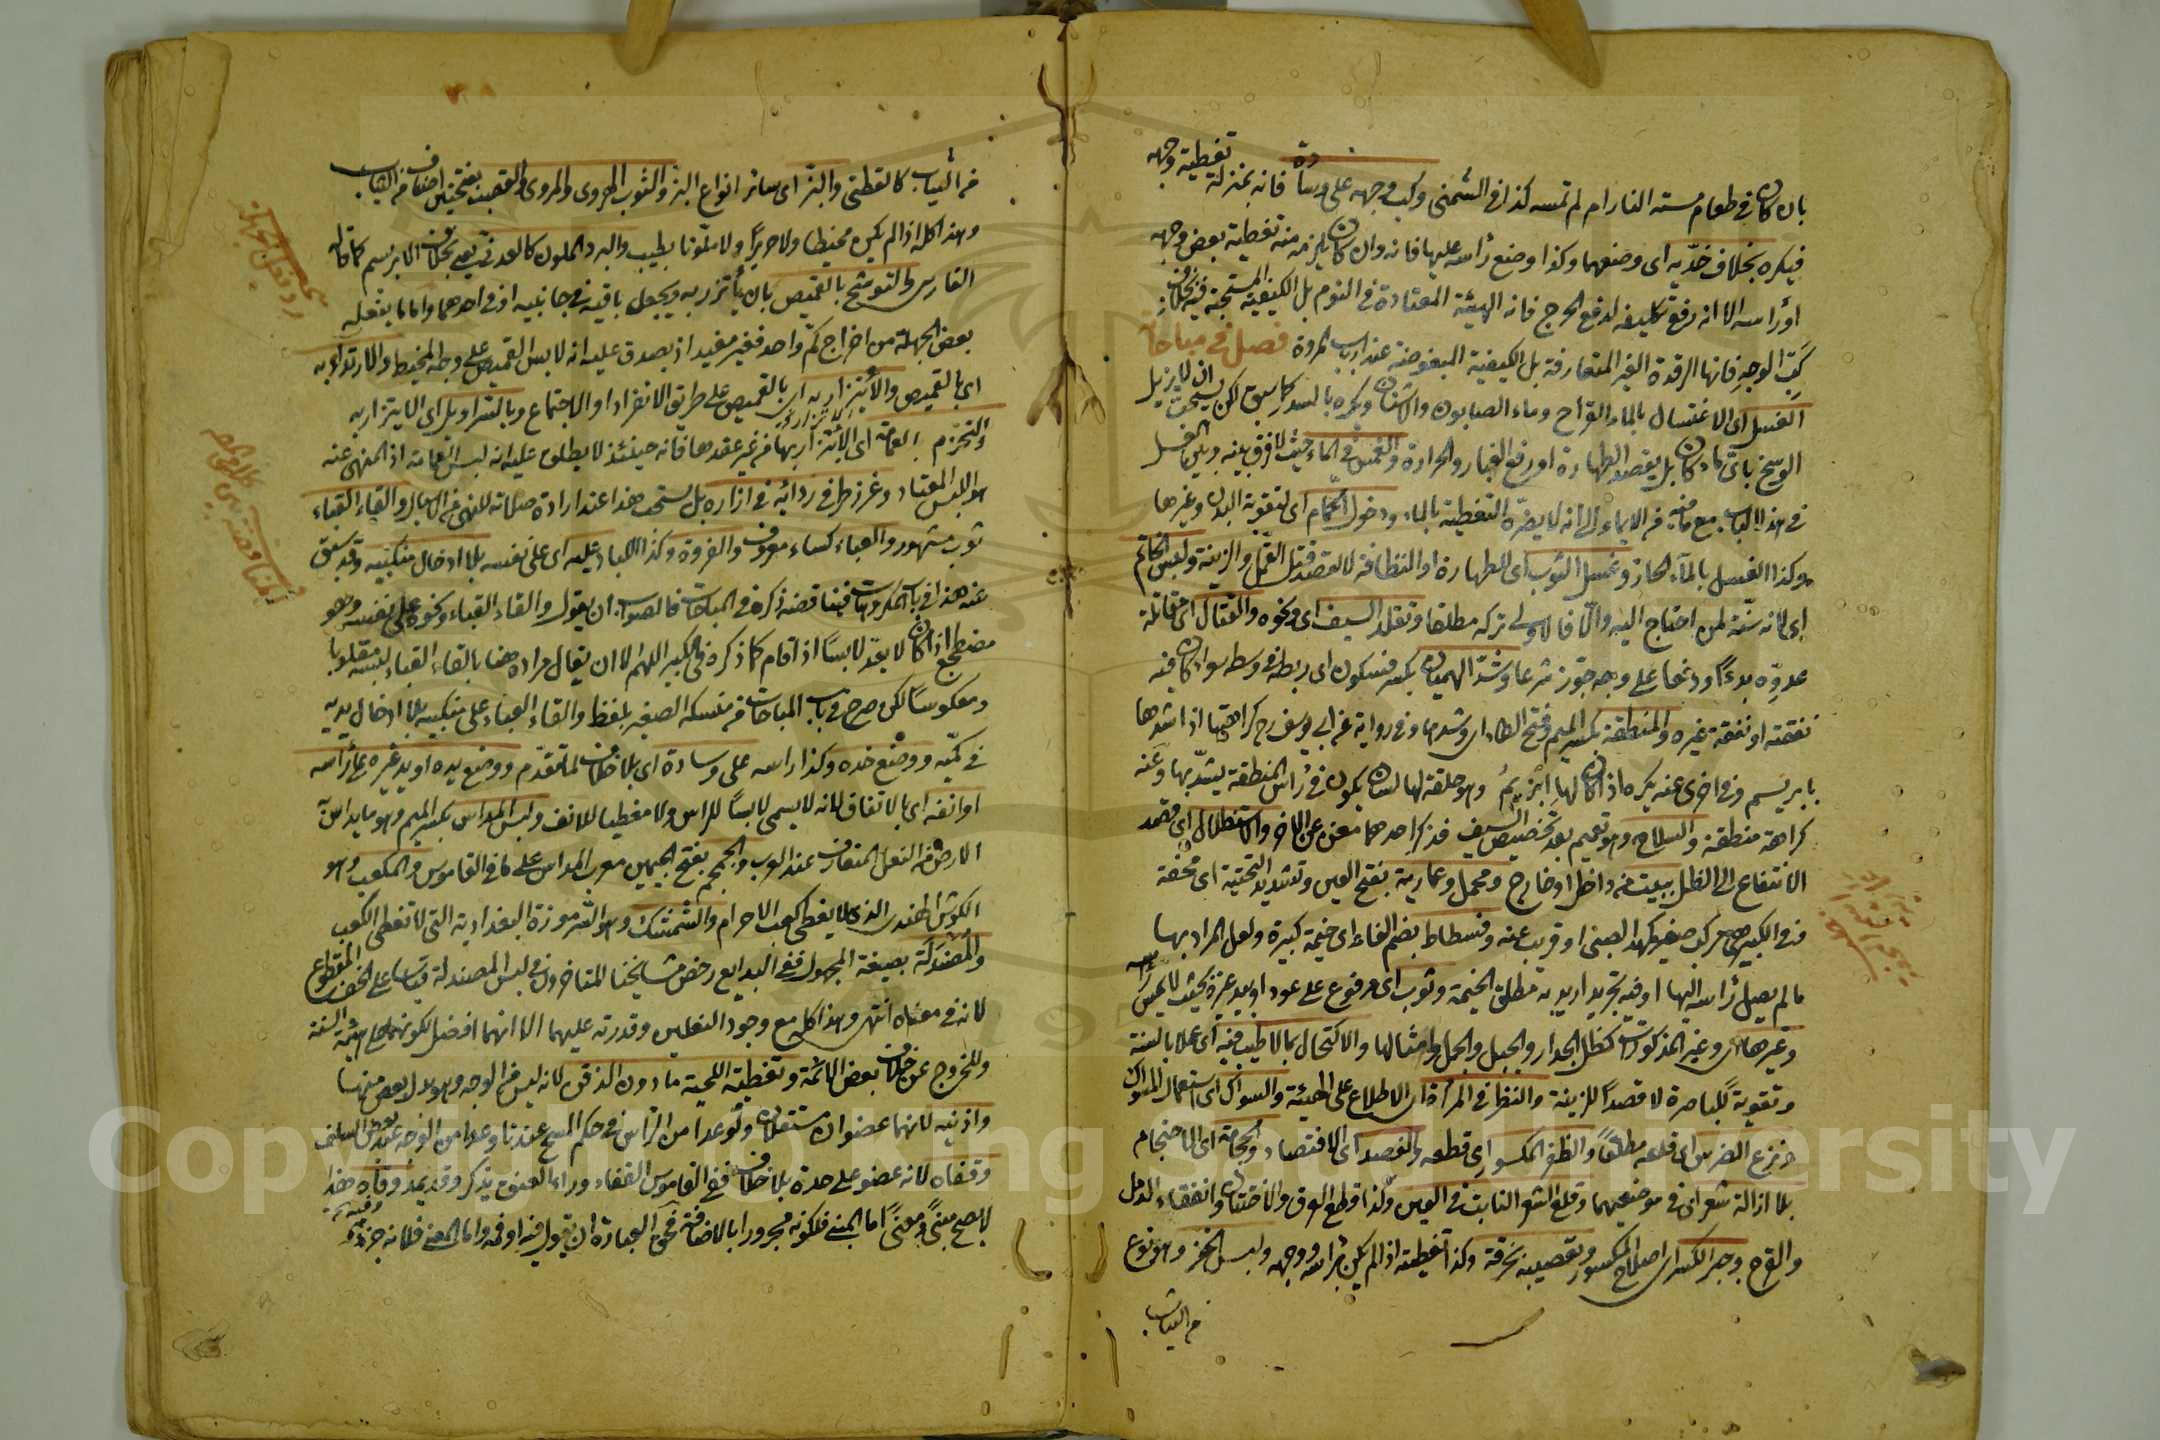 بان كان في طعام مسته النار ام لم تمسه كذا في الشمني وكب وجهه على وسادة فانه بمنزلة تغطية وجهه
فيكره بخلاف خديه اى وضعهما وكذا وضع رأسه عليها فانه وان كان يلزم منه تغطية بعض وجهه
او رأسه الا انه رفع تكليفه لدفع الحرج فانه الهيئة المعتادة في النوم بل الكيفية المستحبة فيه بخلاف
كب الوجه فانها الرقدة الغير المتعارفة بل الكيفية المبغوضة عند ارباب المروة فصل في مباحاته
الغسل اى الاغتسال بالماء القراح وماء الصابون والاشنان ويكره بالسدر كما سبق لكن يستحب ان لا يزيل
الوسخ باى ماء كان بل يقصد الطهارة او رفع الغبار والحرارة والغمس في الماء حيث لا فرق بينه وبين الغسل
في هذا الباب مع ما فيه من الايماء الى انه لا يضره التغطية بالماء ودخول الحمام اى لتقوية البدن وغيرها
وكذا الغسل بالماء الحار وغسل الثوب اى للطهارة او النظافة لا لقصد قتل القمل والزينة ولبس الخاتم
اى لانه سنة لمن احتاج اليه والا فالاولى تركه مطلقا وتقلد السيف اى ونحوه والقتال اى مقاتلة
عدوه بدءا ودفعا على وجه جوز شرعا وشد الهميان بكسر فسكون اى ربطه في وسطه سواء كان فيه
نفقته او نفقة غيره والمنطقة بكسر الميم وفتح الطاء اى وشدها وفي رواية عن ابي يوسف رح كراهتها اذا شدها
بابريسم وفي اخرى عنه يكره اذا كان لها ابزيم وهو حلقة لها لسان يكون في رأس المنطقة يشد بها وعنه
كراهة منطقة والسلاح وهو تعميم بعد تخصيص السيف فذكر احدهما مغن عن الاخر والاستظلال اى قصد
الانتفاع الى الظل ببيت من داخل او خارج ومحمل وعمارية بفتح العين وتشديد التحتية اى محفة
وفي الكبير هي مركب صغير كمهد الصبي او قريب منه وفسطاط بضم الفاء اى خيمة كبيرة ولعل المراد بها
ما لم يصل رأسه اليها او فيه تجريد اريد به مطلق الخيمة وثوب اى مرفوع على عود او بيد غيره بحيث لا يمس رأسه
وغيرها اى وغير المذكورات كظل الجدار والجبل والجمل وامثالها والاكتحال بما لا طيب فيه اى عملا بالسنة
وتقوية للباصرة لا قصدا للزينة والنظر في المرأة اى الاطلاع على الهيئة والسواك اى استعمال المسواك
ونزع الضرس اى قلعه مطلقا والظفر المكسور اى قطعه والفصد اى الافتصاد والحجامة اى الاحتجام
بلا ازالة شعر اى في موضعيهما وقلع الشعر النابت في العين وكذا قطع العرق والاختتان وانفقاء الدمل
والقرح وجبر الكسر اى اصلاح المكسور وتعصيبه بخرقة وكذا تغطيته اذا لم يكن برأسه ووجهه ولبس الخز وهو نوع
من الثياب
من الثياب كالقطني والبز اى سائر انواع البز والثوب الهروى والمروى والقصب بفتحتين اصناف من الثياب
وهذا كله اذا لم يكن مخيطا ولا حريرا ولا ملونا بطيب والبرد الملون كالعدني يعني بخلاف الابريسم كما قاله
الفارسي والتوشح بالقميص بان يأتزر به ويجعل باقيه في جانبيه او في احدهما واما ما يفعله
بعض الجهلة من اخراج كم واحد فغير مفيد اذ يصدق عليه انه لابس القميص على وجه المخيط والارتداء به
اى بالقميص والاتزار به اى بالقميص على طريق الانفراد او الاجتماع وبالسراويل اى الايتزار به
والتحزم بالعمامة اى الايتزار بها من غير عقدها فانه حينئذ لا يطلق عليه انه لبس العمامة اذ المنهى عنه
هو اللبس المعتاد وغرز طرفي ردائه في ازاره بل يستحب هذا عند ارادة صلاته للنهي عن السبال والقاء القباء
ثوب مشهور والعباء كساء معروف والفروة وكذا اللباد عليه اى على نفسه بلا ادخال منكبيه وقد سبق
عنه هذا في باب المكروهات فيناقضه ذكره في المباحات فالصواب ان يقول والقاء القباء ونحوه على نفسه وهو
مضطجع اذا كان لا يعد لابسا اذا قام كما ذكره في الكبير اللهم الا ان يقال مراده هنا بالقاء القباء لبسه مقلوبا
ومعكوسا لكن صرح في باب المباحات من منسكه الصغير بلفظ والقاء القباء على منكبيه بلا ادخال يديه
في كميه ووضع خده وكذا راسه على وسادة اى بلا خلاف لما تقدم ووضع يده او يد غيره على رأسه
او انفه اى بالاتفاق لانه لا يسمى لابسا للراس ولا مغطيا للانف ولبس المداس بكسر الميم وهو ما يداس به
الارض من النعل المتعارف عند العرب والجمجم بفتح الجيمين معرب المداس على ما في القاموس والمكعب وهو
الكوش الهندى الذى لا يغطى كعب الاحرام والشمشك وهو السرموزة البغدادية التى لا تغطى الكعب
والمصندلة بصيغة المجهول ففي البدايع رخص مشايخنا المتاخرون في لبس المصندلة قياسا على الخف المقطوع
لانه في معناه انتهى وهذا كله مع وجود النعلين وقدرته عليهما الا انهما افضل لكونهما على هيئة السنة
وللخروج عن خلاف بعض الائمة وتغطية اللحية ما دون الذقن لانه ليس من الوجه وهو بدل بعض منها
واذنيه لانهما عضوان مستقلان ولو عدا من الرأس في حكم المسح عندنا وعدا من الوجه عند بعض السلف
وقفاه لانه عضو على حدة بلا خلاف ففي القاموس القفاء وراء العنق يذكر وقد يمد وفاه هذا
لا يصح مبنى ومعنى اما المبنى فلكونه مجرورا بالاضافة فحق العبارة ان يقول فيه او فمه واما المعنى فلانه جزء